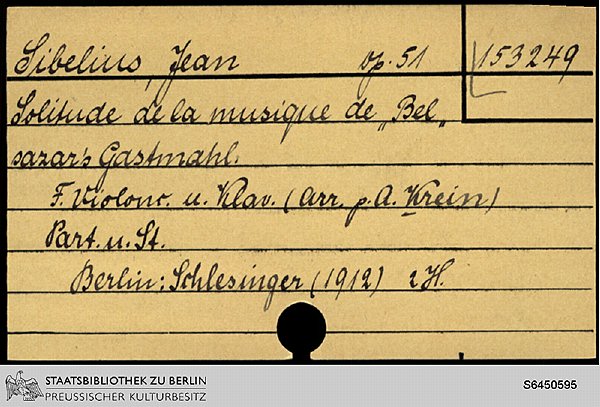 Sibelius, Jean op. 51 153249
Solitude de la musique de „Bel„
sazar's Gastmahl.
F. Violonc. u. Klav. (Arr. p. A. Krein)
Part. u. St.
Berlin: Schlesinger (1912) 2 H.
STAATSBIBLIOTHEK ZU BERLIN
PREUSSISCHER KULTURBESITZ
S6450595